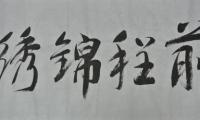 前程锦绣